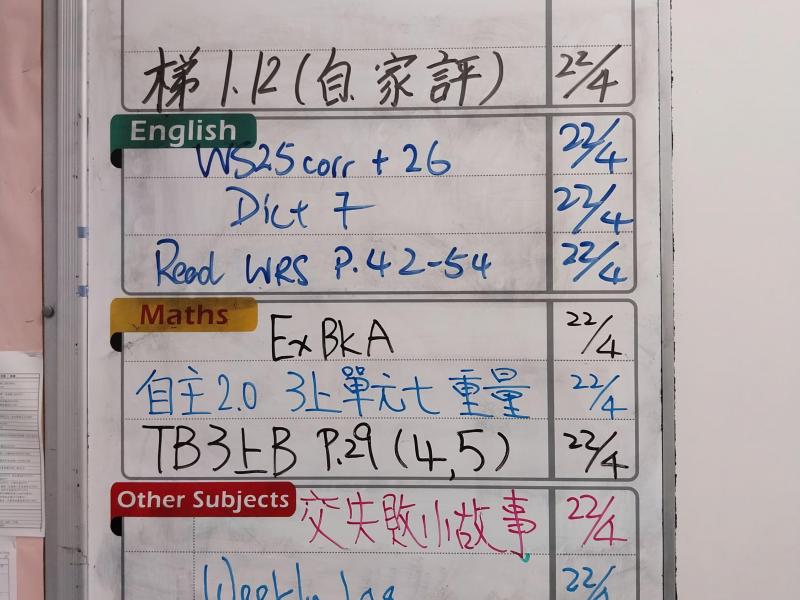 梯1.12(自家評) 22/4
English
WS25 corr + 26 22/4
Dict 7 22/4
Read WRS P.42-54 22/4
Maths
Ex Bk A 22/4
自主2.0 3上單元七 重量 22/4
TB3上B P.29 (4,5) 22/4
Other Subjects
交失敗小故事 22/4
Weekly Log 22/4